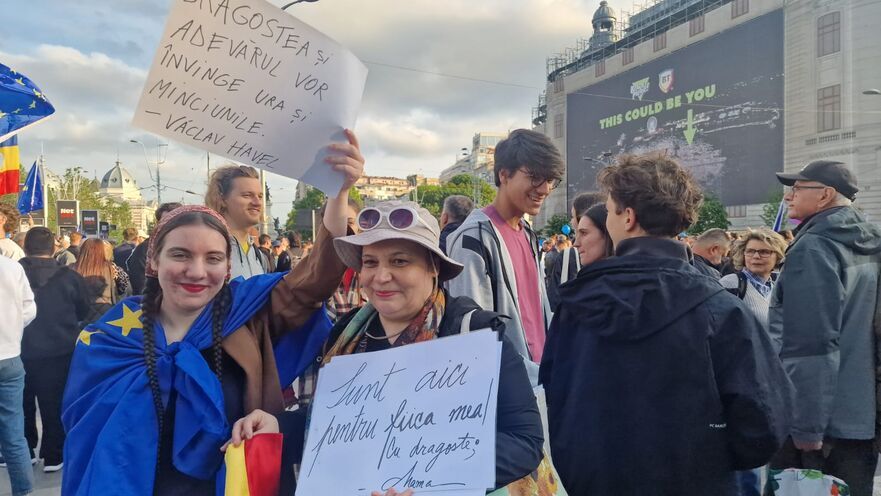 DRAGOSTEA ȘI
ADEVARUL VOR
ÎNVINGE URA ȘI
MINCIUNILE.
– VÁCLAV HAVEL
BT
THIS COULD BE YOU
Sunt aici
pentru fiica mea!
Cu dragoste,
– Mama